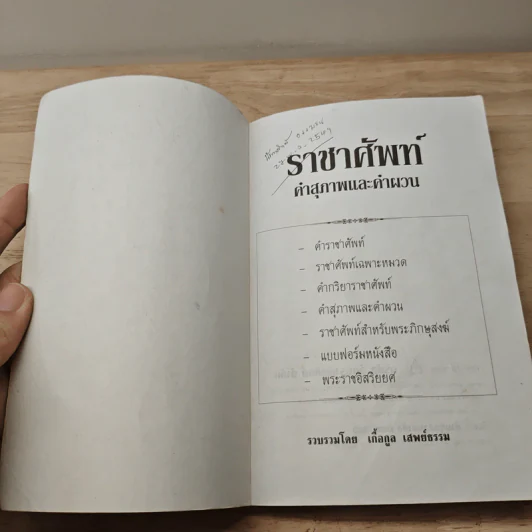 ราชาศัพท์
คำสุภาพและคำผวน
– คำราชาศัพท์
– ราชาศัพท์เฉพาะหมวด
– คำกริยาราชาศัพท์
– คำสุภาพและคำผวน
– ราชาศัพท์สำหรับพระภิกษุสงฆ์
– แบบฟอร์มหนังสือ
– พระราชอิสริยยศ
รวบรวมโดย เกื้อกูล เสพย์ธรรม